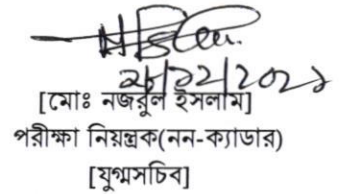 ২৮/১২/২০২১
[মোঃ নজরুল ইসলাম]
পরীক্ষা নিয়ন্ত্রক(নন-ক্যাডার)
[যুগ্মসচিব]